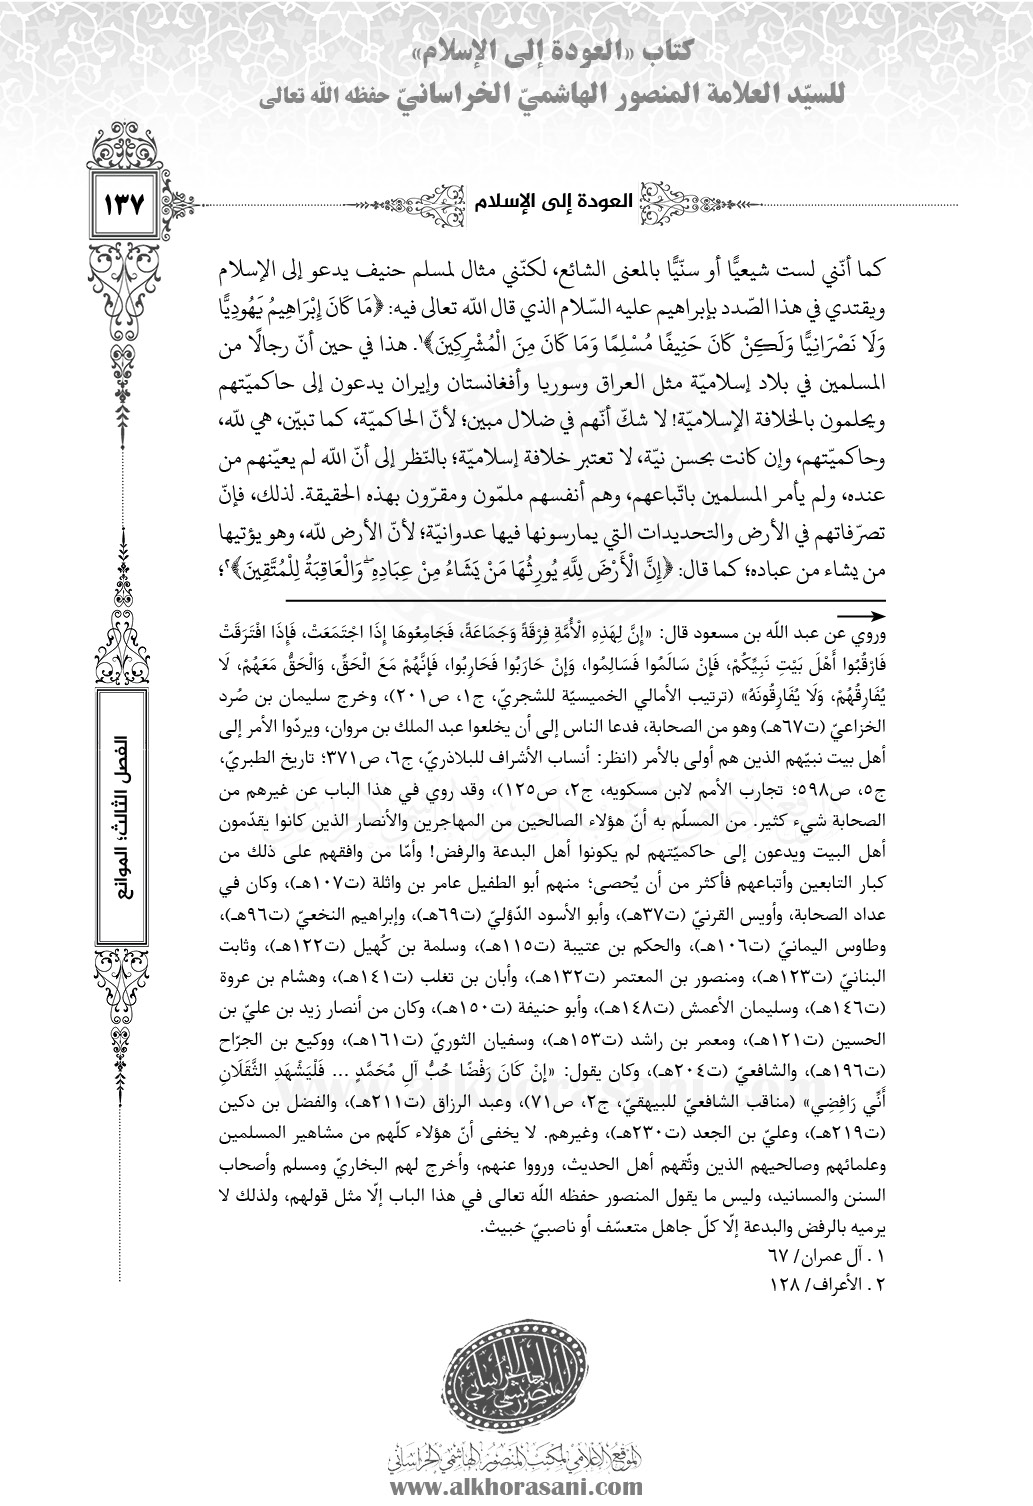 كتاب «العودة إلى الإسلام»
للسيّد العلامة المنصور الهاشميّ الخراسانيّ حفظه الله تعالى
١٣٧
العودة إلى الإسلام
كما أنّني لست شيعيًّا أو سنّيًّا بالمعنى الشائع، لكنّني مثال لمسلم حنيف يدعو إلى الإسلام
ويقتدي في هذا الصّدد بإبراهيم عليه السّلام الذي قال اللّه تعالى فيه: ﴿مَا كَانَ إِبْرَاهِيمُ يَهُودِيًّا
وَلَا نَصْرَانِيًّا وَلَكِنْ كَانَ حَنِيفًا مُسْلِمًا وَمَا كَانَ مِنَ الْمُشْرِكِينَ﴾١. هذا في حين أنّ رجالًا من
المسلمين في بلاد إسلاميّة مثل العراق وسوريا وأفغانستان وإيران يدعون إلى حاكميّتهم
ويحلمون بالخلافة الإسلاميّة! لا شكّ أنّهم في ضلال مبين؛ لأنّ الحاكميّة، كما تبيّن، هي للّه،
وحاكميّتهم، وإن كانت بحسن نيّة، لا تعتبر خلافة إسلاميّة؛ بالنّظر إلى أنّ اللّه لم يعيّنهم من
عنده، ولم يأمر المسلمين باتّباعهم، وهم أنفسهم ملمّون ومقرّون بهذه الحقيقة. لذلك، فإنّ
تصرّفاتهم في الأرض والتحديدات التي يمارسونها فيها عدوانيّة؛ لأنّ الأرض للّه، وهو يؤتيها
من يشاء من عباده؛ كما قال: ﴿إِنَّ الْأَرْضَ لِلَّهِ يُورِثُهَا مَنْ يَشَاءُ مِنْ عِبَادِهِ ۖ وَالْعَاقِبَةُ لِلْمُتَّقِينَ﴾٢؛
وروي عن عبد اللّه بن مسعود قال: «إِنَّ لِهَذِهِ الْأُمَّةِ فِرْقَةً وَجَمَاعَةً، فَجَامِعُوهَا إِذَا اجْتَمَعَتْ، فَإِذَا افْتَرَقَتْ
فَارْقُبُوا أَهْلَ بَيْتِ نَبِيِّكُمْ، فَإِنْ سَالَمُوا فَسَالِمُوا، وَإِنْ حَارَبُوا فَحَارِبُوا، فَإِنَّهُمْ مَعَ الْحَقِّ، وَالْحَقُّ مَعَهُمْ، لَا
يُفَارِقُهُمْ، وَلَا يُفَارِقُونَهُ» (ترتيب الأمالي الخميسيّة للشجريّ، ج١، ص٢٠١)، وخرج سليمان بن صُرد
الخزاعيّ (ت٦٧هـ) وهو من الصحابة، فدعا الناس إلى أن يخلعوا عبد الملك بن مروان، ويردّوا الأمر إلى
أهل بيت نبيّهم الذين هم أولى بالأمر (انظر: أنساب الأشراف للبلاذريّ، ج٦، ص٣٧١؛ تاريخ الطبريّ،
ج٥، ص٥٩٨؛ تجارب الأمم لابن مسكويه، ج٢، ص١٢٥)، وقد روي في هذا الباب عن غيرهم من
الصحابة شيء كثير. من المسلّم به أنّ هؤلاء الصالحين من المهاجرين والأنصار الذين كانوا يقدّمون
أهل البيت ويدعون إلى حاكميّتهم لم يكونوا أهل البدعة والرفض! وأمّا من وافقهم على ذلك من
كبار التابعين وأتباعهم فأكثر من أن يُحصى؛ منهم أبو الطفيل عامر بن واثلة (ت١٠٧هـ)، وكان في
عداد الصحابة، وأويس القرنيّ (ت٣٧هـ)، وأبو الأسود الدّؤليّ (ت٦٩هـ)، وإبراهيم النخعيّ (ت٩٦هـ)،
وطاوس اليمانيّ (ت١٠٦هـ)، والحكم بن عتيبة (ت١١٥هـ)، وسلمة بن كُهيل (ت١٢٢هـ)، وثابت
البنانيّ (ت١٢٣هـ)، ومنصور بن المعتمر (ت١٣٢هـ)، وأبان بن تغلب (ت١٤١هـ)، وهشام بن عروة
(ت١٤٦هـ)، وسليمان الأعمش (ت١٤٨هـ)، وأبو حنيفة (ت١٥٠هـ)، وكان من أنصار زيد بن عليّ بن
الحسين (ت١٢١هـ)، ومعمر بن راشد (ت١٥٣هـ)، وسفيان الثوريّ (ت١٦١هـ)، ووكيع بن الجرّاح
(ت١٩٦هـ)، والشافعيّ (ت٢٠٤هـ)، وكان يقول: «إِنْ كَانَ رَفْضًا حُبُّ آلِ مُحَمَّدٍ ... فَلْيَشْهَدِ الثَّقَلَانِ
أَنِّي رَافِضِي» (مناقب الشافعيّ للبيهقيّ، ج٢، ص٧١)، وعبد الرزاق (ت٢١١هـ)، والفضل بن دكين
(ت٢١٩هـ)، وعليّ بن الجعد (ت٢٣٠هـ)، وغيرهم. لا يخفى أنّ هؤلاء كلّهم من مشاهير المسلمين
وعلمائهم وصالحيهم الذين وثّقهم أهل الحديث، ورووا عنهم، وأخرج لهم البخاريّ ومسلم وأصحاب
السنن والمسانيد، وليس ما يقول المنصور حفظه اللّه تعالى في هذا الباب إلّا مثل قولهم، ولذلك لا
يرميه بالرفض والبدعة إلّا كلّ جاهل متعسّف أو ناصبيّ خبيث.
١ . آل عمران/ ٦٧
٢ . الأعراف/ ١٢٨
الفصل الثالث؛ الموانع
المنصور الهاشمي الخراساني
الموقع الإعلامي لمكتب المنصور الهاشمي الخراساني
www.alkhorasani.com